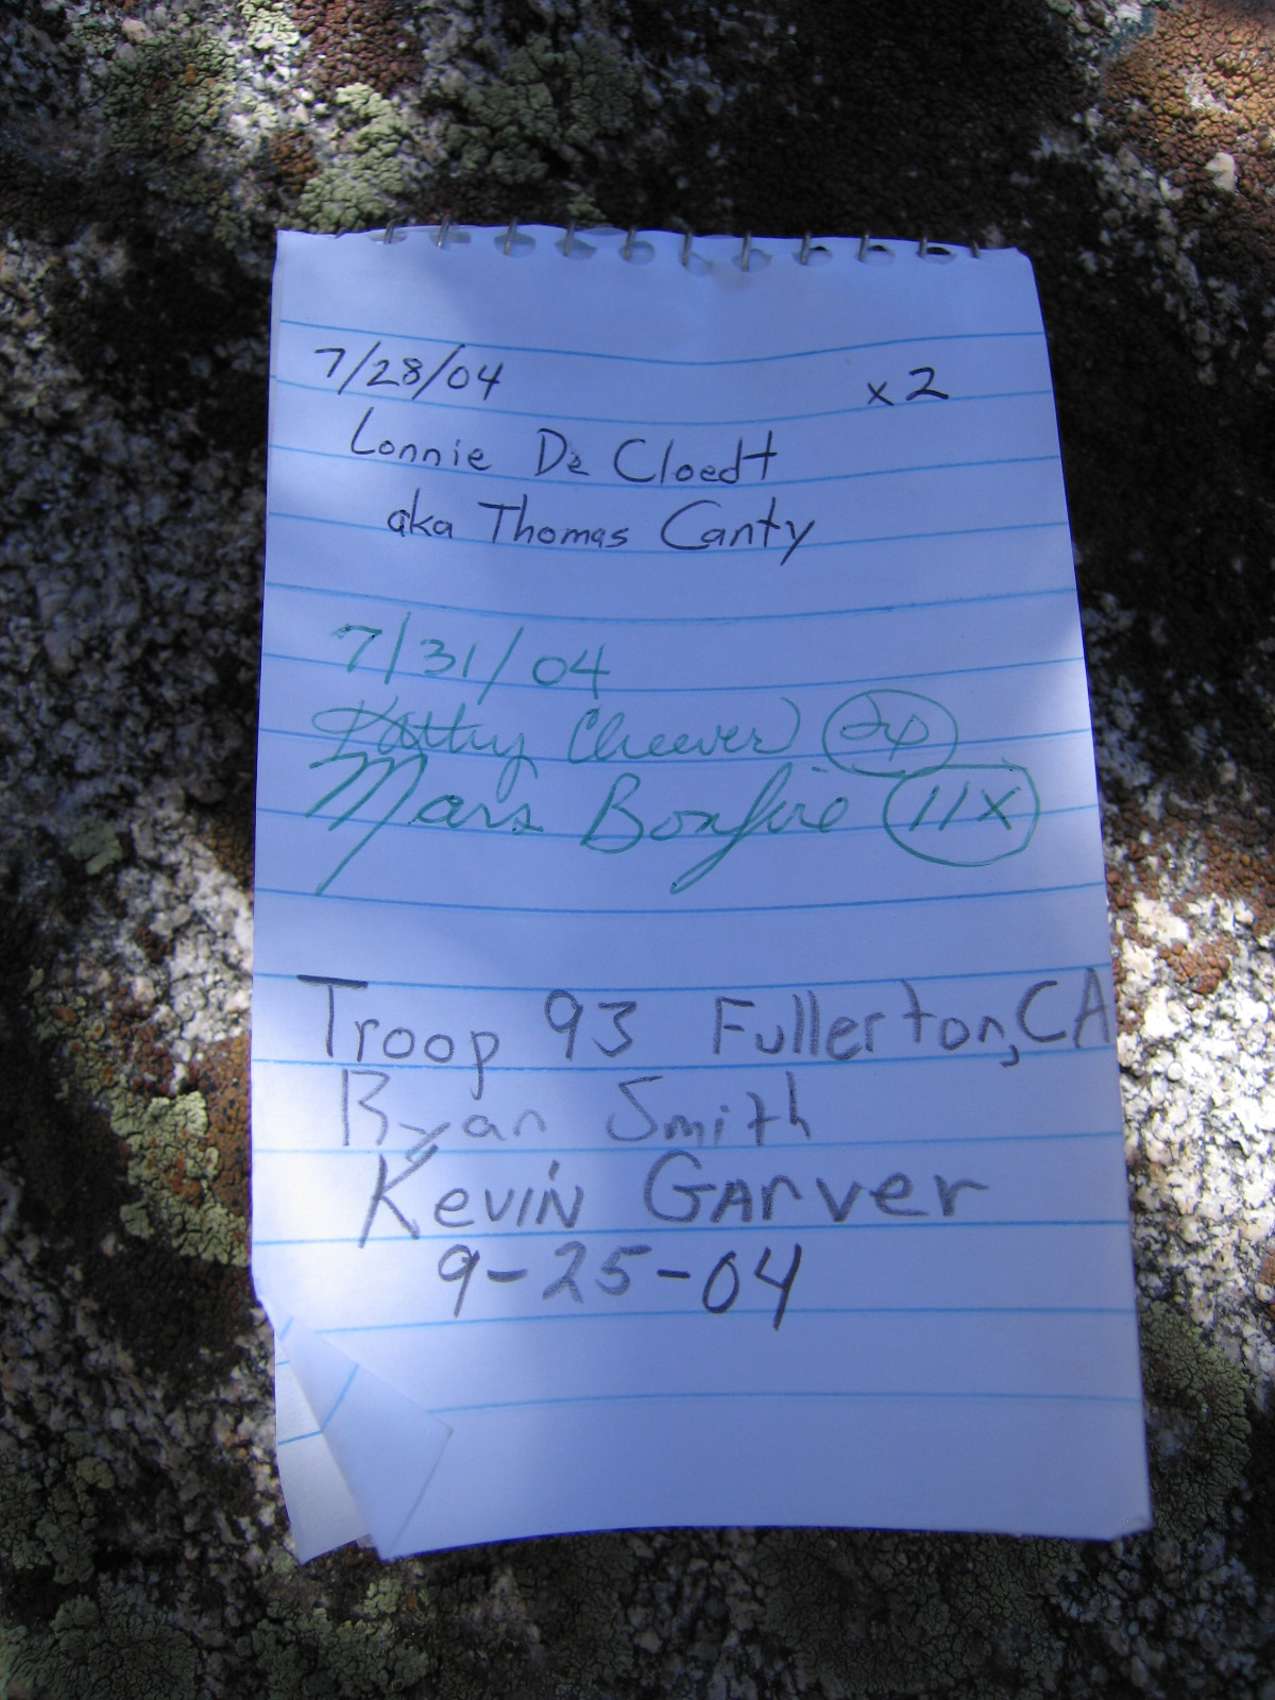 7/28/04 x 2
Lonnie De Cloedt
aka Thomas Canty
7/31/04
Kathy Cheever 2x
Mars Bonfire 11X
Troop 93 Fullerton, CA
Ryan Smith
Kevin Garver
9-25-04